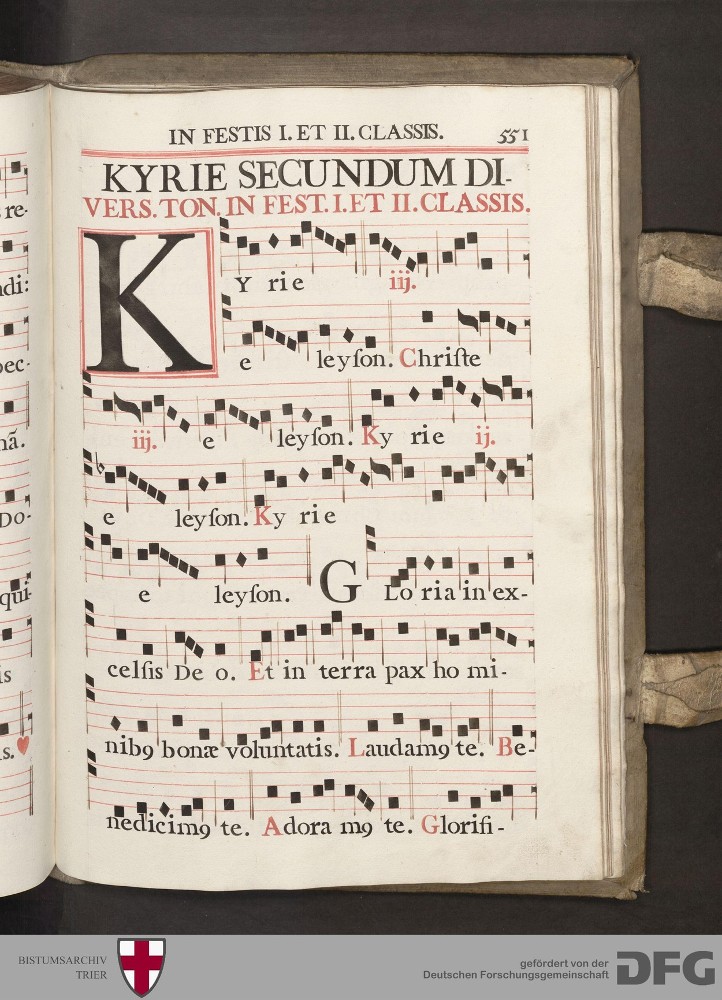 IN FESTIS I. ET II. CLASSIS. 551
KYRIE SECUNDUM DI-
VERS. TON. IN FEST. I. ET II. CLASSIS.
KY rie iij.
e leyſon. Chriſte
iij. e leyſon. Ky rie ij.
e leyſon. Ky rie
e leyſon. G Lo ria in ex-
celſis De o. Et in terra pax ho mi-
nibꝯ bonæ voluntatis. Laudamꝯ te. Be-
nedicimꝯ te. Adora mꝯ te. Glorifi-
re-
ndi:
pec-
nā.
Do-
qui-
is
s.
BISTUMSARCHIV
TRIER
gefördert von der
Deutschen Forschungsgemeinschaft
DFG